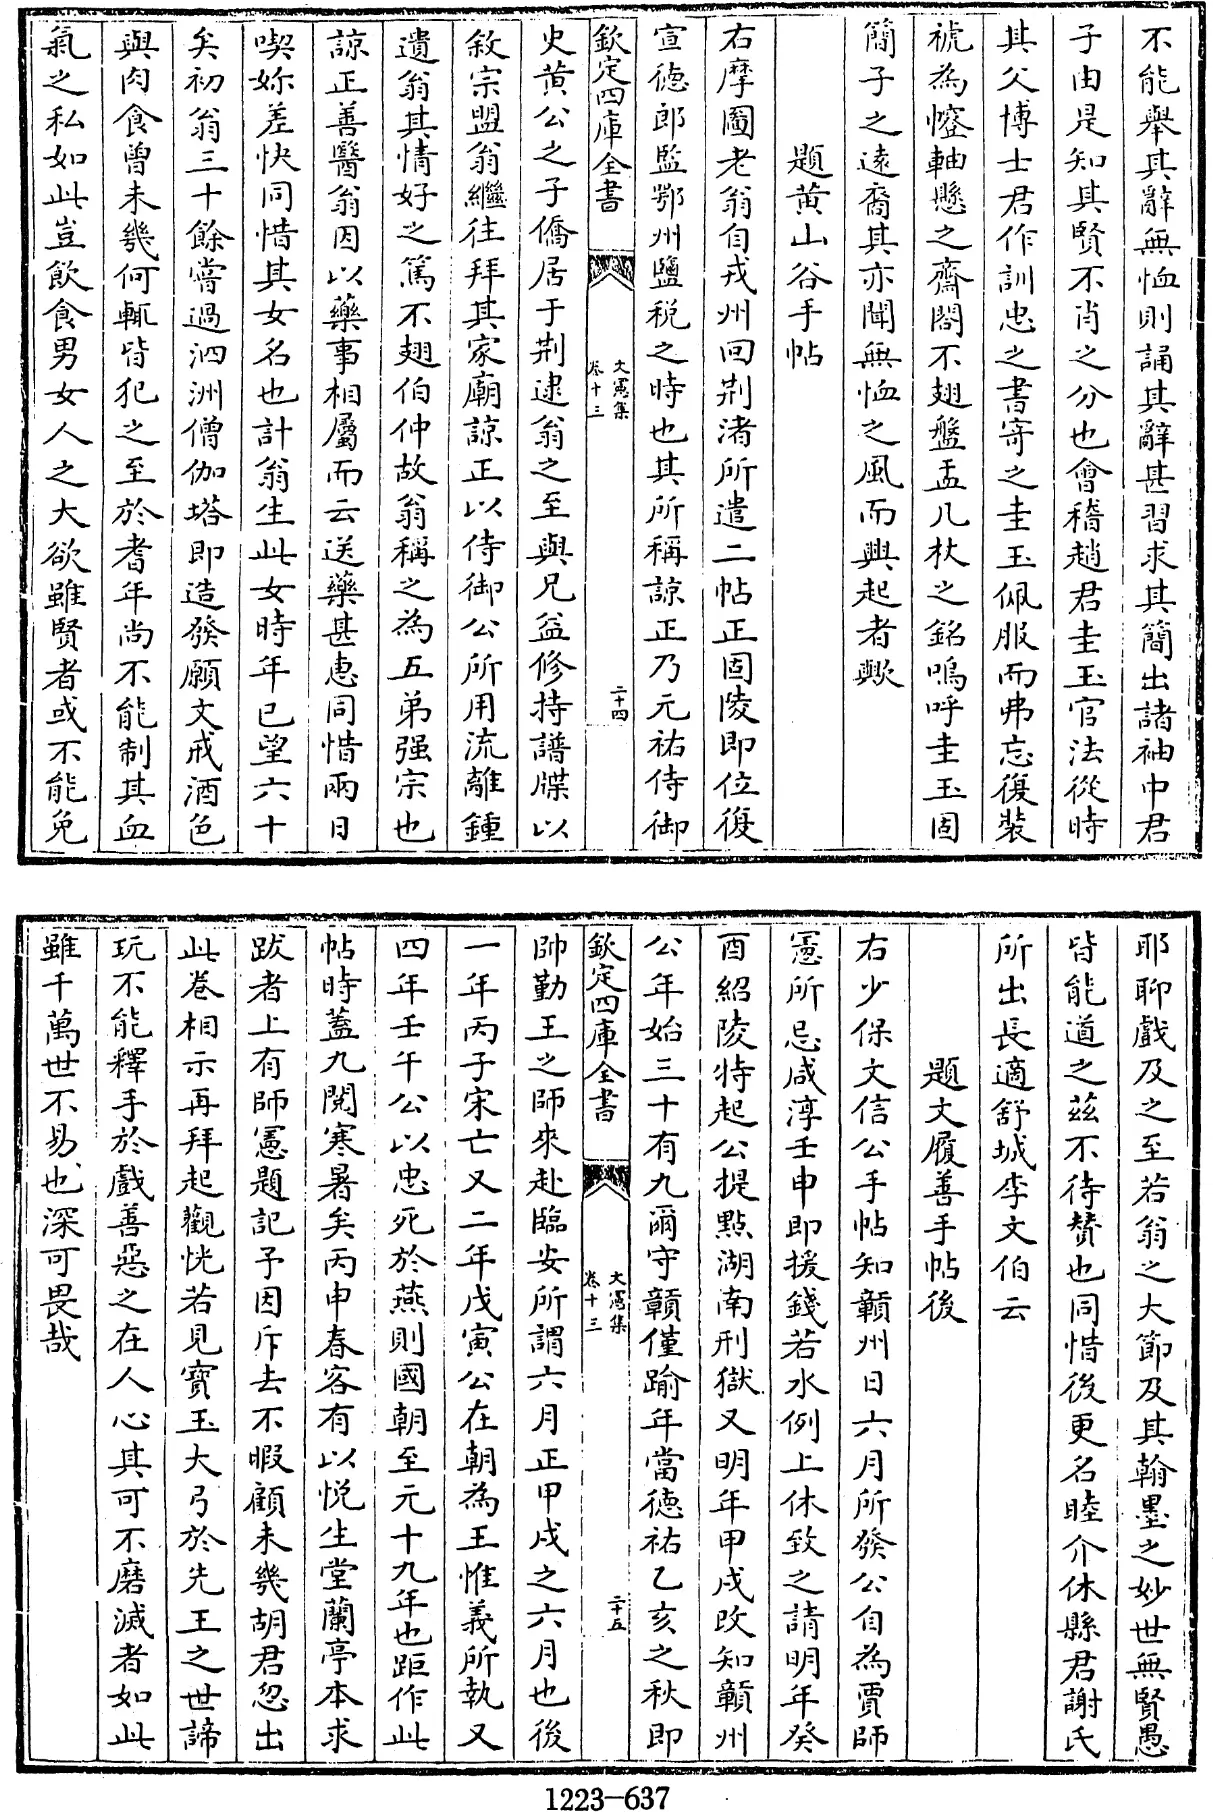 不能舉其辭無恤則誦其辭甚習求其簡出諸袖中君
子由是知其賢不肖之分也會稽趙君圭玉官法從時
其父博士君作訓忠之書寄之圭玉佩服而弗忘復裝
褫為幢軸懸之齋閣不翅盤盂几杖之銘嗚呼圭玉固
簡子之遠裔其亦聞無恤之風而興起者歟
題黄山谷手帖
右摩圍老翁自戎州回荆渚所遣二帖正固陵即位復
宣徳郎監鄂州鹽税之時也其所稱諒正乃元祐侍御
欽定四庫全書
文憲集
卷十三
二十四
史黄公之子僑居于荆逮翁之至與兄益修持譜牒以
敘宗盟翁繼往拜其家廟諒正以侍御公所用流離鍾
遺翁其情好之篤不翅伯仲故翁稱之為五弟强宗也
諒正善醫翁因以藥事相屬而云送藥甚恵同惜兩日
喫妳差快同惜其女名也計翁生此女時年已望六十
矣初翁三十餘嘗過泗洲僧伽塔即造發願文戒酒色
與肉食曾未幾何輒皆犯之至於耆年尚不能制其血
氣之私如此豈飲食男女人之大欲雖賢者或不能免
耶聊戲及之至若翁之大節及其翰墨之妙世無賢愚
皆能道之兹不待賛也同惜後更名睦介休縣君謝氏
所出長適舒城李文伯云
題文履善手帖後
右少保文信公手帖知贛州日六月所發公自為賈師
憲所忌咸淳壬申即援錢若水例上休致之請明年癸
酉紹陵特起公提點湖南刑獄又明年甲戌改知贛州
公年始三十有九爾守贛僅踰年當徳祐乙亥之秋即
欽定四庫全書
文憲集
卷十三
二十五
帥勤王之師來赴臨安所謂六月正甲戌之六月也後
一年丙子宋亡又二年戊寅公在朝為王惟義所執又
四年壬午公以忠死於燕則國朝至元十九年也距作此
帖時蓋九閲寒暑矣丙申春客有以悦生堂蘭亭本求
跋者上有師憲題記予因斥去不暇顧未幾胡君忽出
此卷相示再拜起觀恍若見寳玉大弓於先王之世諦
玩不能釋手於戲善惡之在人心其可不磨滅者如此
雖千萬世不易也深可畏哉
1223-637